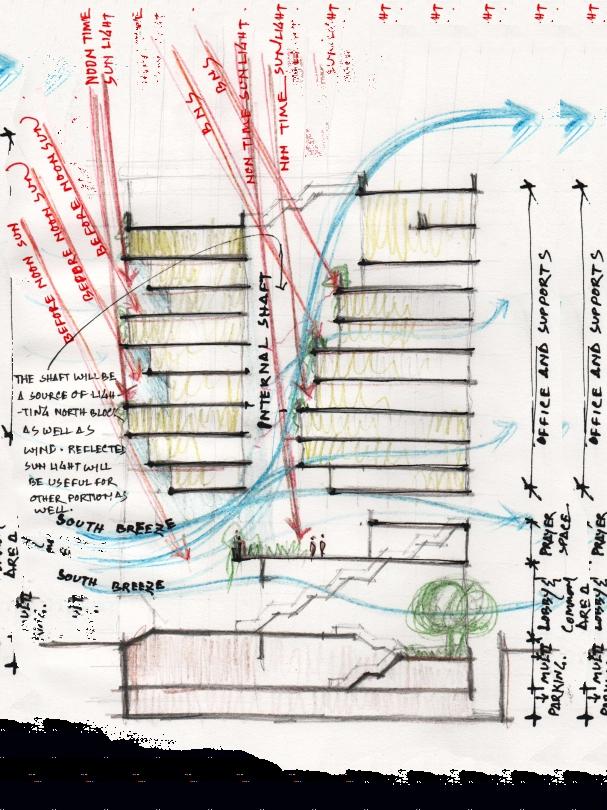 NOON TIME
SUN LIGHT
B.N.S
BNS
NON TIME SUNLIGHT
NON TIME SUNLIGHT
BEFORE NOON SUN
BEFORE NOON SUN
BEFORE NOON SUN
INTERNAL SHAFT
THE SHAFT WILL BE
A SOURCE OF LIGH-
-TING NORTH BLOCK
AS WELL AS
WIND. REFLECTED
SUN LIGHT WILL
BE USEFUL FOR
OTHER PORTIONAS
WELL.
SOUTH BREEZE
SOUTH BREEZE
AREA
OFFICE AND SUPPORTS
PRAYER
SPACE.
LOBBY &
COMMON
AREA
MULTI
PARKING.
OFFICE AND SUPPORTS
PRAYER
LOBBY &
MULTI